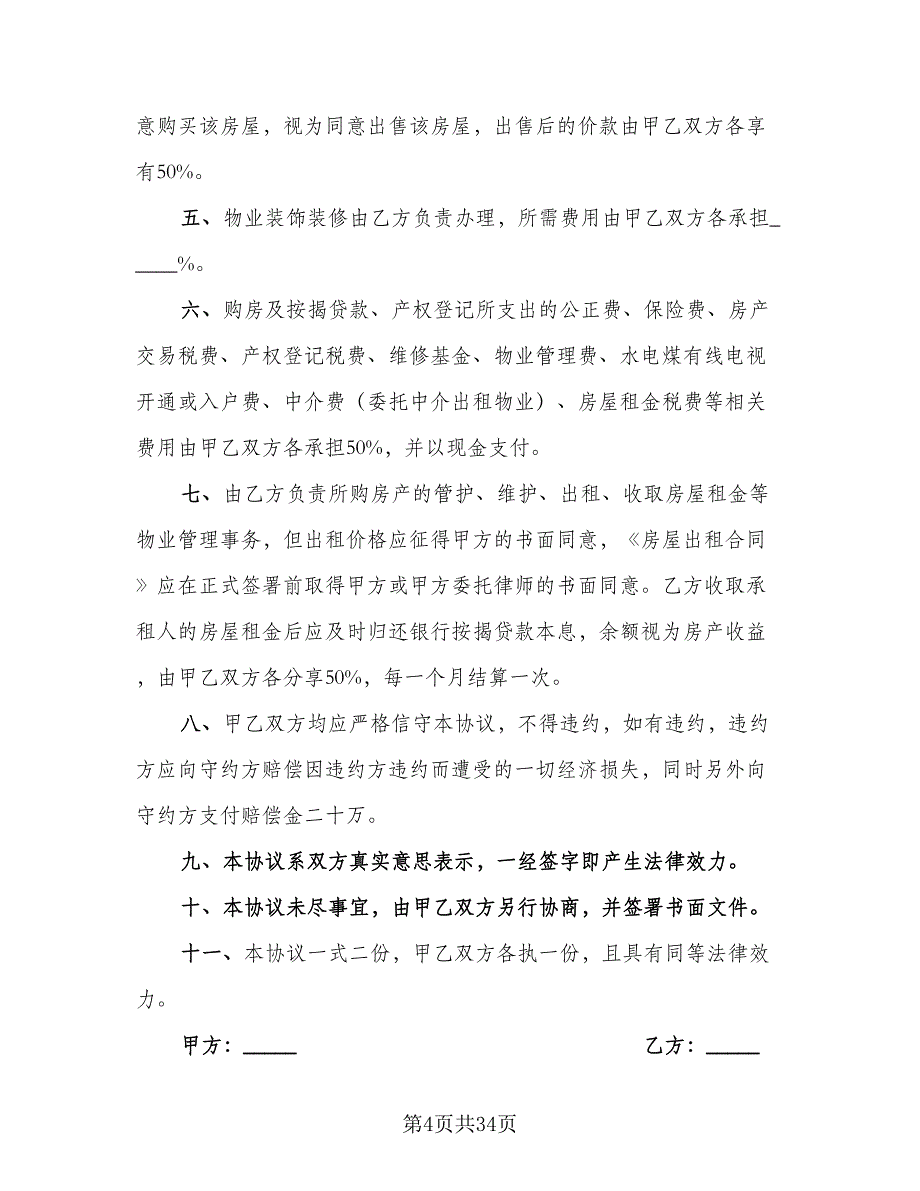 意购买该房屋，视为同意出售该房屋，出售后的价款由甲乙双方各享
有50%。
五、物业装饰装修由乙方负责办理，所需费用由甲乙双方各承担_
____%。
六、购房及按揭贷款、产权登记所支出的公正费、保险费、房产
交易税费、产权登记税费、维修基金、物业管理费、水电煤有线电视
开通或入户费、中介费（委托中介出租物业）、房屋租金税费等相关
费用由甲乙双方各承担50%，并以现金支付。
七、由乙方负责所购房产的管护、维护、出租、收取房屋租金等
物业管理事务，但出租价格应征得甲方的书面同意，《房屋出租合同
》应在正式签署前取得甲方或甲方委托律师的书面同意。乙方收取承
租人的房屋租金后应及时归还银行按揭贷款本息，余额视为房产收益
，由甲乙双方各分享50%，每一个月结算一次。
八、甲乙双方均应严格信守本协议，不得违约，如有违约，违约
方应向守约方赔偿因违约方违约而遭受的一切经济损失，同时另外向
守约方支付赔偿金二十万。
九、本协议系双方真实意思表示，一经签字即产生法律效力。
十、本协议未尽事宜，由甲乙双方另行协商，并签署书面文件。
十一、本协议一式二份，甲乙双方各执一份，且具有同等法律效
力。
甲方：_____ 乙方：_____
第4页共34页